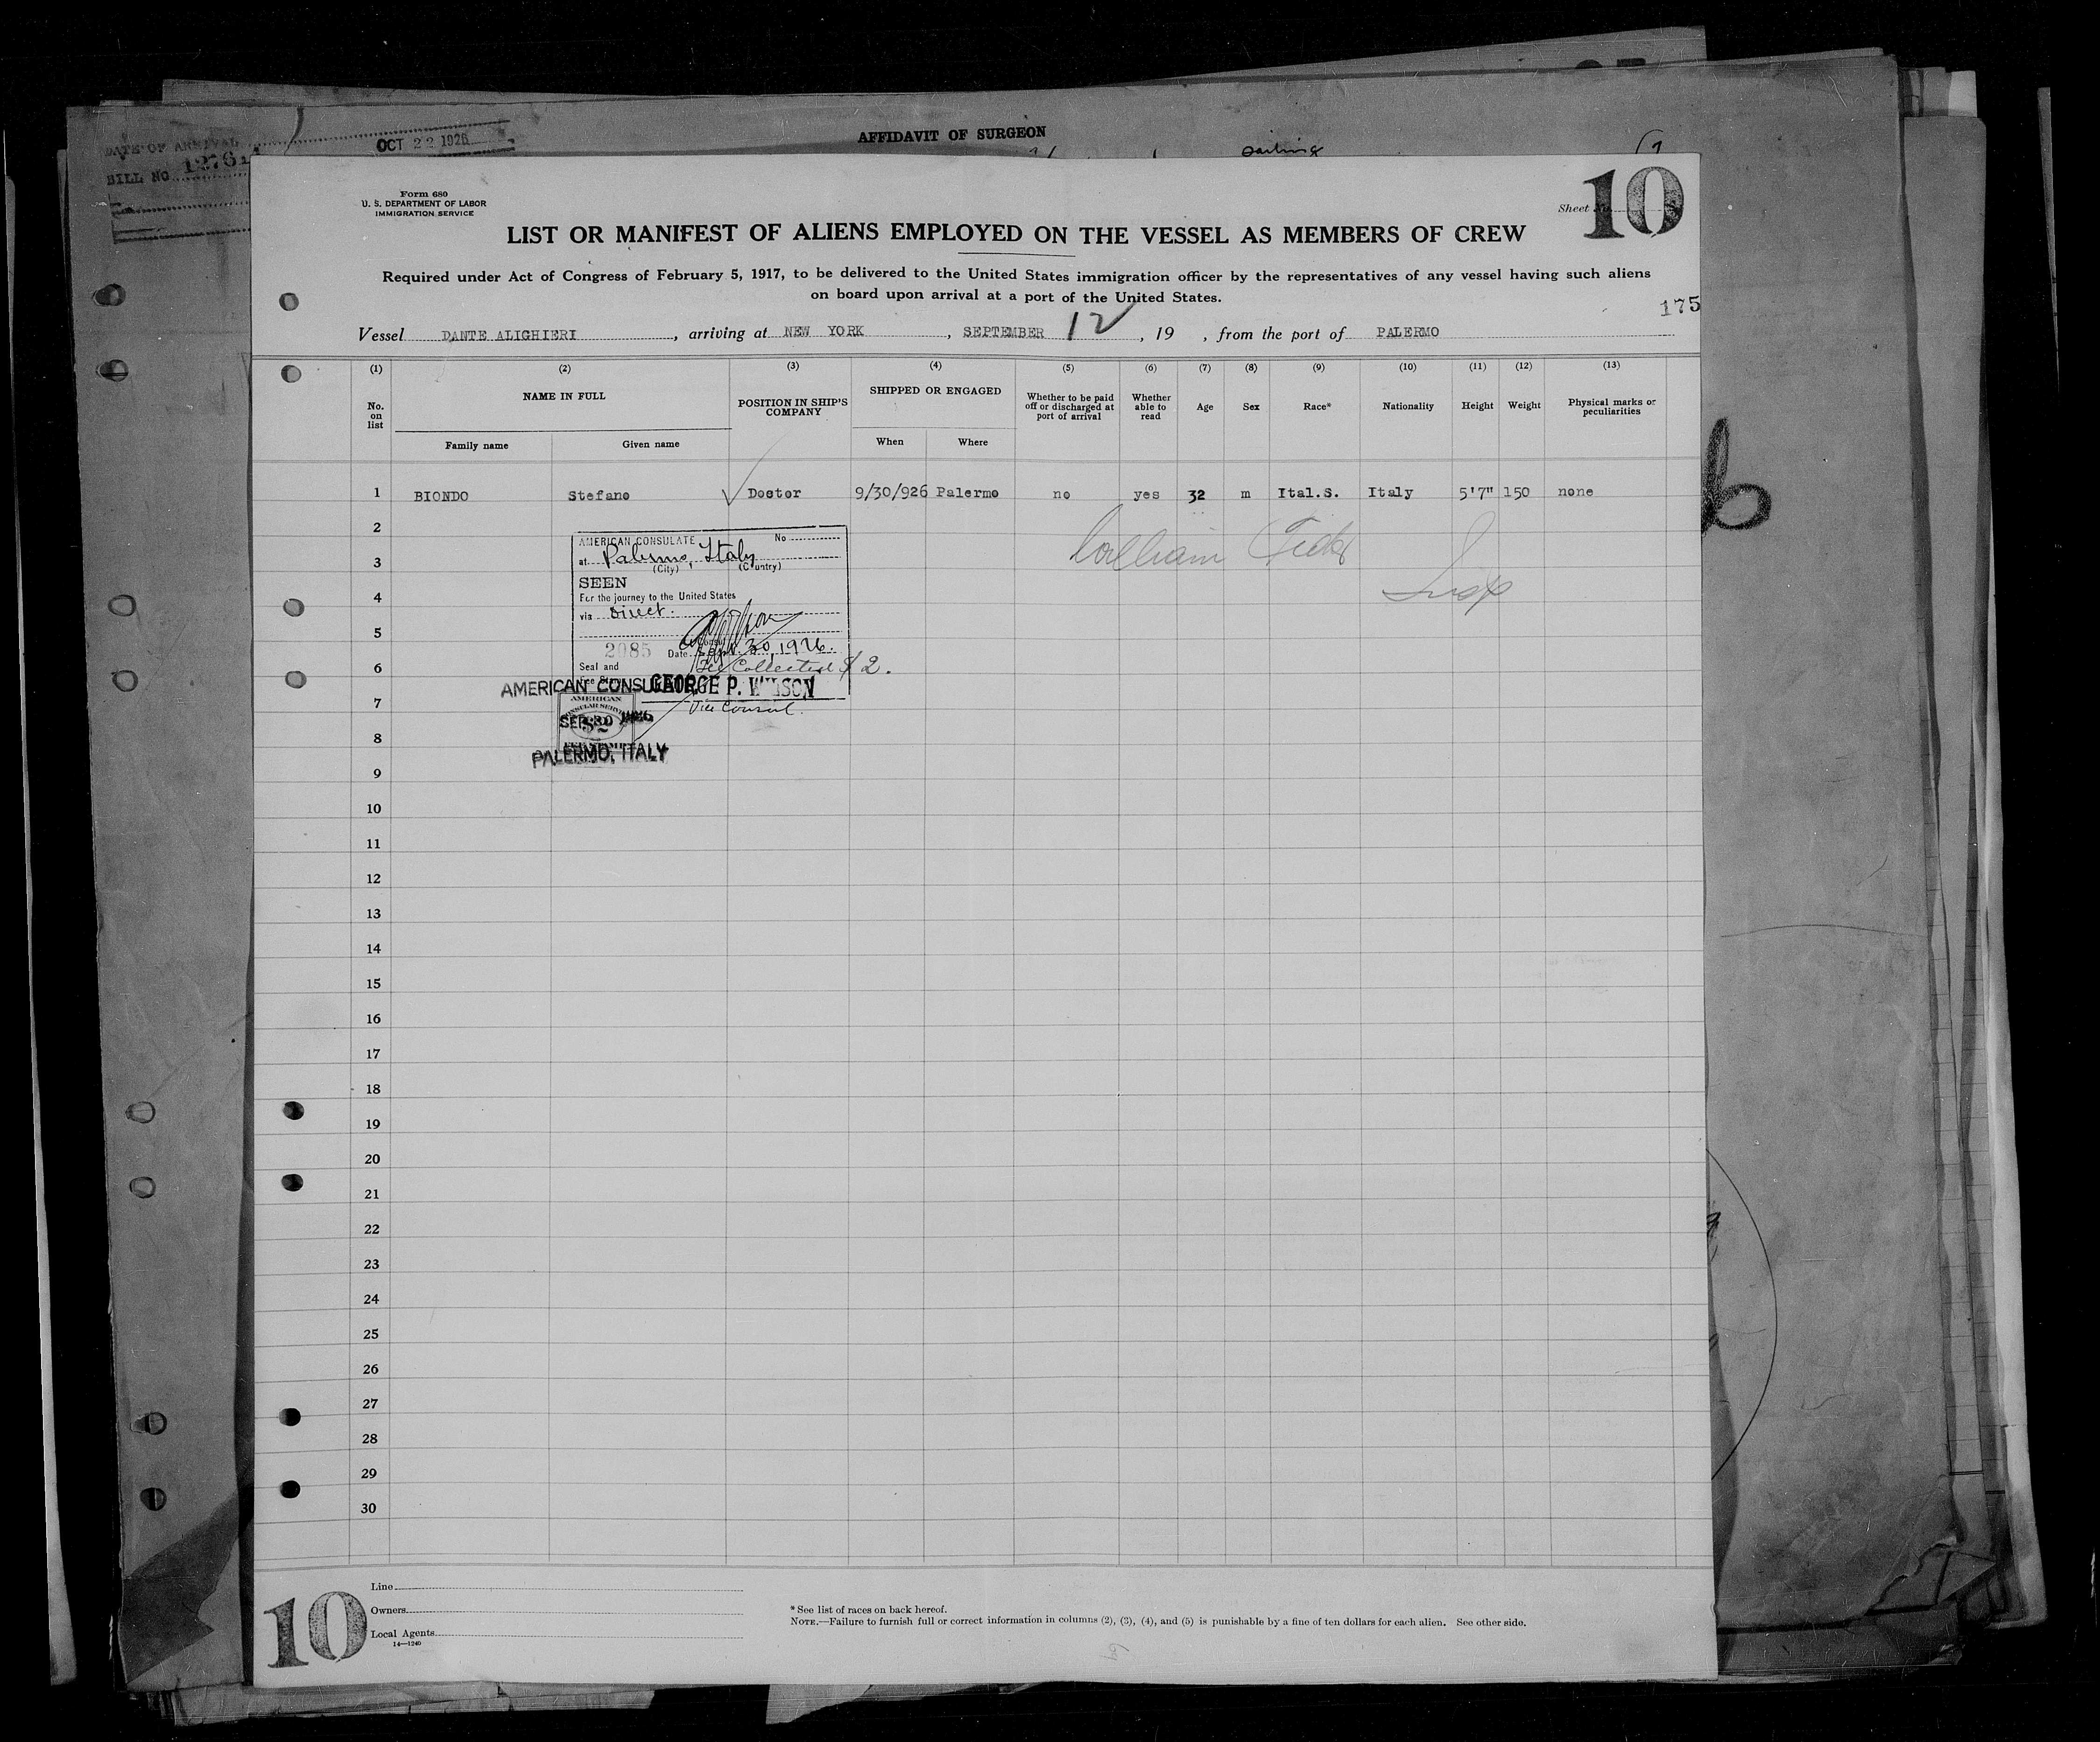 DATE OF ARRIVAL OCT 22 1926
BILL NO
AFFIDAVIT OF SURGEON
sailing
Form 680
U. S. DEPARTMENT OF LABOR
IMMIGRATION SERVICE
Sheet No. 10
LIST OR MANIFEST OF ALIENS EMPLOYED ON THE VESSEL AS MEMBERS OF CREW
Required under Act of Congress of February 5, 1917, to be delivered to the United States immigration officer by the representatives of any vessel having such aliens
on board upon arrival at a port of the United States.
175
Vessel DANTE ALIGHIERI, arriving at NEW YORK, SEPTEMBER 12, 19 , from the port of PALERMO
(1) (2) (3) (4) (5) (6) (7) (8) (9) (10) (11) (12) (13)
No. on list
NAME IN FULL
Family name Given name
POSITION IN SHIP'S COMPANY
SHIPPED OR ENGAGED
When Where
Whether to be paid off or discharged at port of arrival
Whether able to read
Age Sex Race* Nationality Height Weight
Physical marks or peculiarities
1 BIONDO Stefano Doctor 9/30/926 Palermo no yes 32 m Ital.S. Italy 5'7" 150 none
2
3
4
5
6
7
8
9
10
11
12
13
14
15
16
17
18
19
20
21
22
23
24
25
26
27
28
29
30
AMERICAN CONSULATE No
at Palermo, Italy
(City) (Country)
SEEN
For the journey to the United States
via Direct.
2085 Date Sept. 30, 1926.
Seal and
Fee Collected $2.
AMERICAN CONSULATE
GEORGE P. WILSON
Vice Consul.
AMERICAN
CONSULAR SERVICE
SEP 30 1926
$2
PALERMO, ITALY
William
Insp
10
Line
Owners
Local Agents
14—1240
* See list of races on back hereof.
NOTE.—Failure to furnish full or correct information in columns (2), (3), (4), and (5) is punishable by a fine of ten dollars for each alien. See other side.